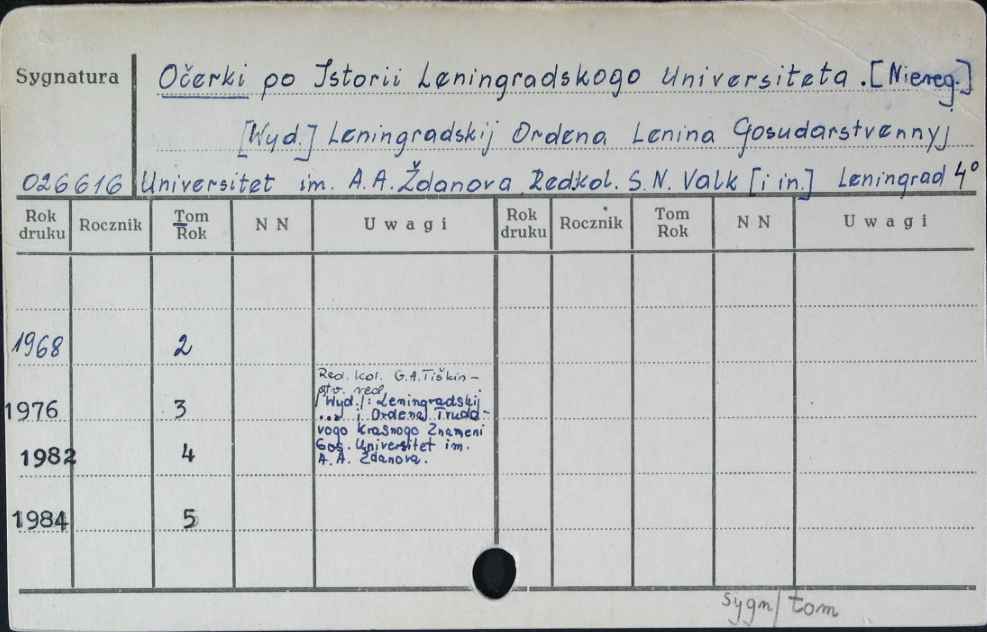 Sygnatura
Očerki po Istorii Leningradskogo Universiteta. [Niereg.]
[Wyd.] Leningradskij Ordena Lenina Gosudarstvennyj
026616 Universitet im. A.A. Ždanova Redkol. S.N. Valk [i in.] Leningrad 4°
Rok druku Rocznik Tom Rok N N Uwagi Rok druku Rocznik Tom Rok N N Uwagi
1968 2
Red. kol. G.A. Tiškin -
otv. red.
1976 3 [Wyd.]: Leningradskij
... i Ordena Trudo-
vogo Krasnogo Znameni
1982 4 Gos. Universitet im.
A.A. Ždanova.
1984 5
sygn/tom